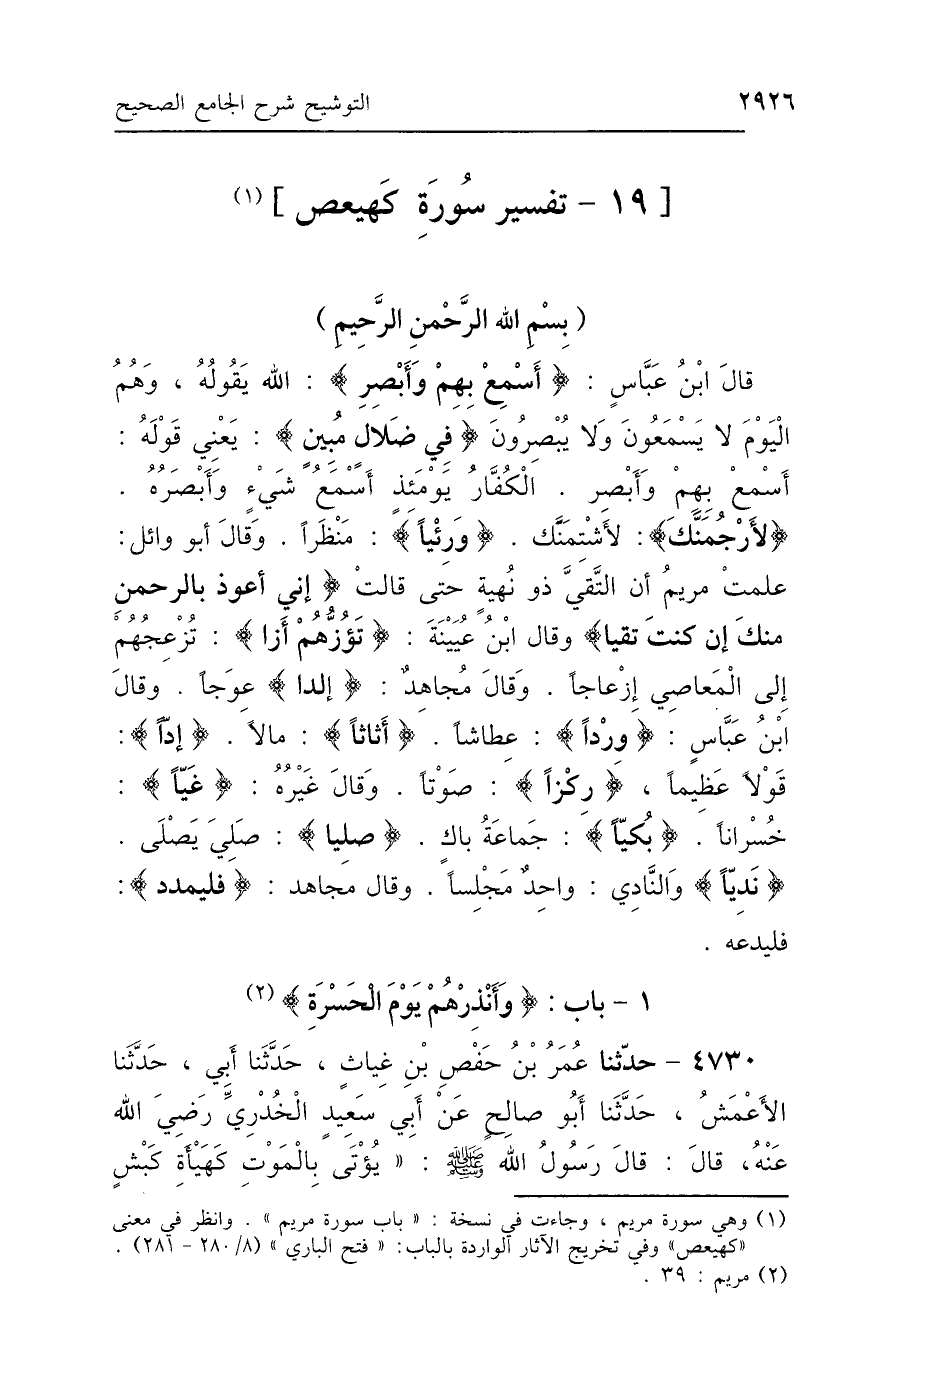 ٢٩٢٦ التوشيح شرح الجامع الصحيح
[ ١٩ - تفسير سُورَةِ كَهيعص ] (١)
( بِسْمِ الله الرَّحْمنِ الرَّحِيمِ )
قالَ ابْنُ عَبَّاسٍ : ﴿ أَسْمِعْ بِهِمْ وَأَبْصِرِ ﴾ : الله يَقُولُهُ ، وَهُمُ
الْيَوْمَ لا يَسْمَعُونَ وَلا يُبْصِرُونَ ﴿ في ضَلالٍ مُبينٍ ﴾ : يَعْنِي قَوْلَهُ :
أَسْمعْ بِهِمْ وَأَبْصِرِ . الْكُفَّارُ يَوْمَئِذٍ أَسْمَعُ شَيْءٍ وَأَبْصَرُهُ .
﴿لأَرْجُمَنَّكَ﴾: لأَشْتِمَنَّك . ﴿ وَرِئْياً ﴾ : مَنْظَراً . وَقَالَ أبو وائل:
علمتْ مريمُ أن التَّقيَّ ذو نُهيةٍ حتى قالتْ ﴿ إني أعوذ بالرحمن
منكَ إن كنتَ تقيا﴾ وقال ابْنُ عُيَيْنَةَ : ﴿ تَؤُزُّهُمْ أَزا ﴾ : تُزْعِجُهُمْ
إلى الْمَعاصِي إزْعاجاً . وَقَالَ مُجاهدٌ : ﴿ إلدا ﴾ عِوَجاً . وقالَ
ابْنُ عَبَّاسٍ : ﴿ وِرْداً ﴾ : عِطاشاً . ﴿ أَثاثاً ﴾ : مالاً . ﴿ إدّاً ﴾:
قَوْلاً عَظِيماً ، ﴿ رِكْزاً ﴾ : صَوْتاً . وَقَالَ غَيْرُهُ : ﴿ غَيّاً ﴾ :
خُسْراناً . ﴿ بُكيّاً ﴾ : جَماعَةُ باكٍ . ﴿ صليا ﴾ : صَلِيَ يَصْلَى .
﴿ نَدِيّاً ﴾ وَالنَّادِي : واحِدٌ مَجْلِساً . وقال مجاهد : ﴿ فليمدد ﴾:
فليدعه .
١ - باب : ﴿ وَأَنْذِرْهُمْ يَوْمَ الْحَسْرَةِ ﴾ (٢)
٤٧٣٠ - حدّثنا عُمَرُ بْنُ حَفْصِ بْنِ غياثٍ ، حَدَّثَنا أَبي ، حَدَّثَنا
الأَعْمَشُ ، حَدَّثَنا أَبُو صالِحٍ عَنْ أَبي سَعِيدٍ الْخُدْرِيِّ رَضِيَ الله
عَنْهُ، قالَ : قالَ رَسُولُ الله ﷺ : « يُؤْتَى بِالْمَوْتِ كَهَيْأَةِ كَبْشٍ
(١) وهي سورة مريم ، وجاءت في نسخة : « باب سورة مريم » . وانظر في معنى
«كهيعص» وفي تخريج الآثار الواردة بالباب: « فتح الباري » (٨/ ٢٨٠ - ٢٨١) .
(٢) مريم : ٣٩ .